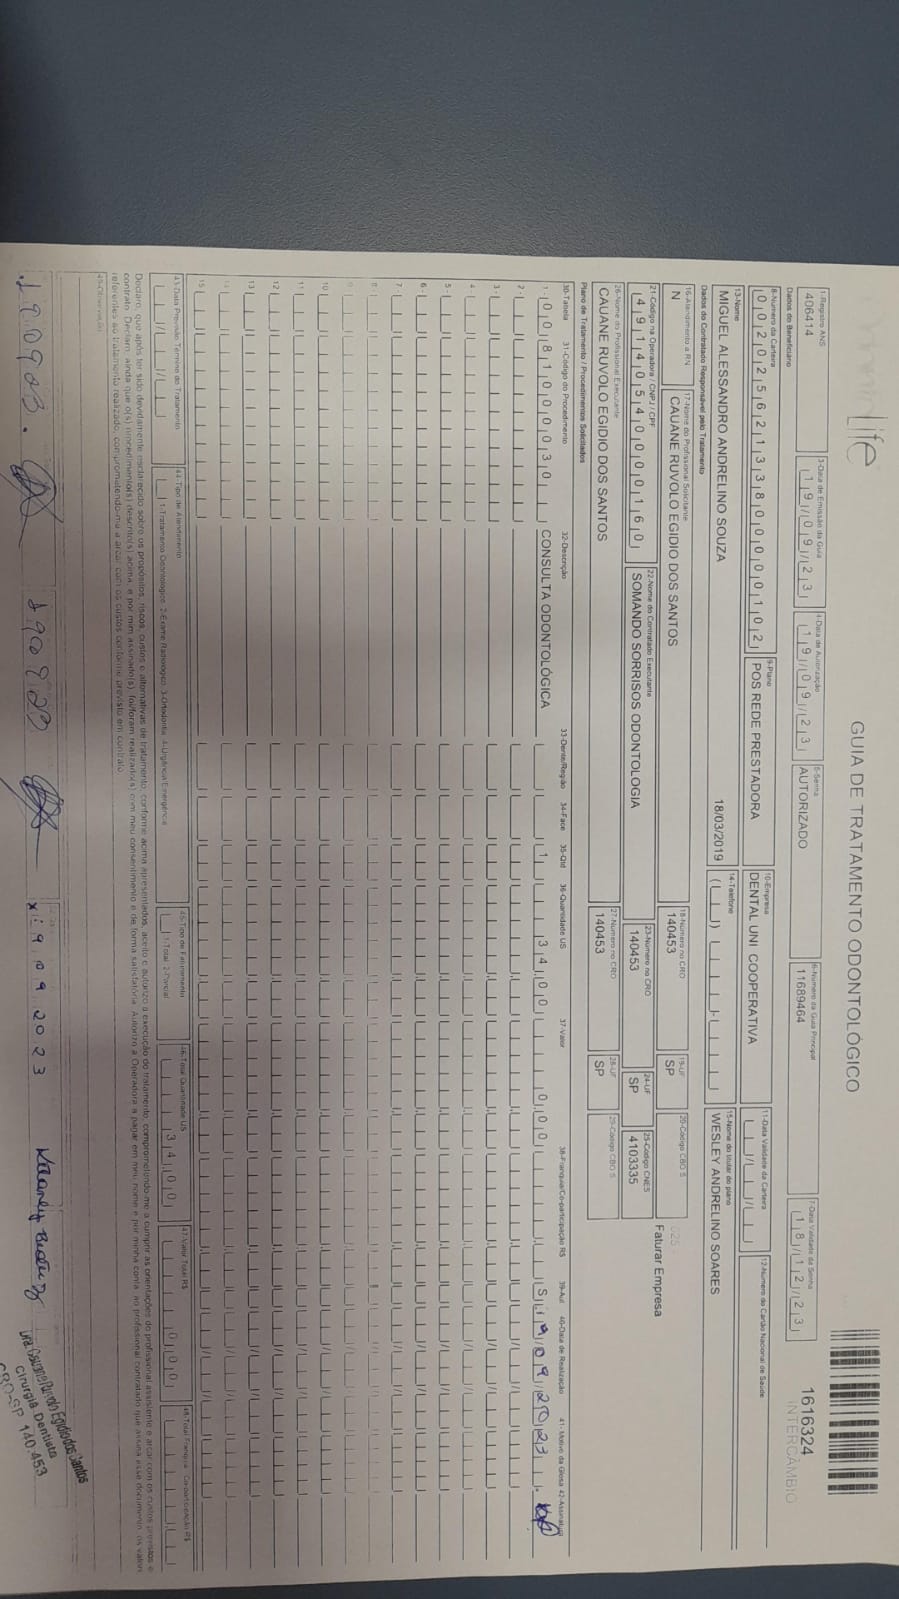 Life
GUIA DE TRATAMENTO ODONTOLÓGICO
1616324
INTERCÂMBIO
1-Registro ANS
406414
3-Data de Emissão da Guia
19/09/23
4-Data de Autorização
19/09/23
5-Senha
AUTORIZADO
6-Número da Guia Principal
11689464
7-Data Validade da Senha
18/12/23
Dados do Beneficiário
8-Número da Carteira
00202562133800000102
9-Plano
POS REDE PRESTADORA
10-Empresa
DENTAL UNI COOPERATIVA
11-Data Validade da Carteira
12-Número do Cartão Nacional de Saúde
13-Nome
MIGUEL ALESSANDRO ANDRELINO SOUZA
18/03/2019
14-Telefone
15-Nome do titular do plano
WESLEY ANDRELINO SOARES
Dados do Contratado Responsável pelo Tratamento
16-Atendimento a RN
N
17-Nome do Profissional Solicitante
CAUANE RUVOLO EGIDIO DOS SANTOS
18-Número no CRO
140453
19-UF
SP
20-Código CBO S
Faturar Empresa
21-Código na Operadora / CNPJ / CPF
49140540000160
22-Nome do Contratado Executante
SOMANDO SORRISOS ODONTOLOGIA
23-Número no CRO
140453
24-UF
SP
25-Código CNES
4103335
26-Nome do Profissional Executante
CAUANE RUVOLO EGIDIO DOS SANTOS
27-Número no CRO
140453
28-UF
SP
29-Código CBO S
Plano de Tratamento / Procedimentos Solicitados
30-Tabela 31-Código do Procedimento 32-Descrição 33-Dente/Região 34-Face 35-Qtd 36-Quantidade US 37-Valor 38-Franquia/Co-participação R$ 39-Aut 40-Data de Realização 41-Motivo da Glosa 42-Assinatura
1- 00 81000030 CONSULTA ODONTOLÓGICA 1 34,00 0,00 S 19/09/2023
2-
3-
4-
5-
6-
7-
8-
9-
10
11
12
13
14
15
43-Data Previsão Término do Tratamento
44-Tipo de Atendimento
1-Tratamento Odontológico 2-Exame Radiológico 3-Ortodontia 4-Urgência/Emergência
45-Tipo de Faturamento
1-Total 2-Parcial
46-Total Quantidade US
34,00
47-Valor Total R$
0,00
48-Total Franquia / Co-participação R$
Declaro, que após ter sido devidamente esclarecido sobre os propósitos, riscos, custos e alternativas de tratamento, conforme acima apresentados, aceito e autorizo a execução do tratamento, comprometendo-me a cumprir as orientações do profissional assistente e arcar com os custos previstos em
contrato. Declaro, ainda que o(s) procedimento(s) descrito(s) acima, e por mim assinado(s), foi/foram realizado(s) com meu consentimento e de forma satisfatória. Autorizo a Operadora a pagar em meu nome e por minha conta, ao profissional contratado que assina esse documento, os valores
referentes ao tratamento realizado, comprometendo-me a arcar com os custos conforme previsto em contrato.
49-Observação
190923.
190923
x 19.09.2023
Dra. Cauane Ruvolo Egidio dos Santos
Cirurgiã Dentista
CRO-SP 140.453